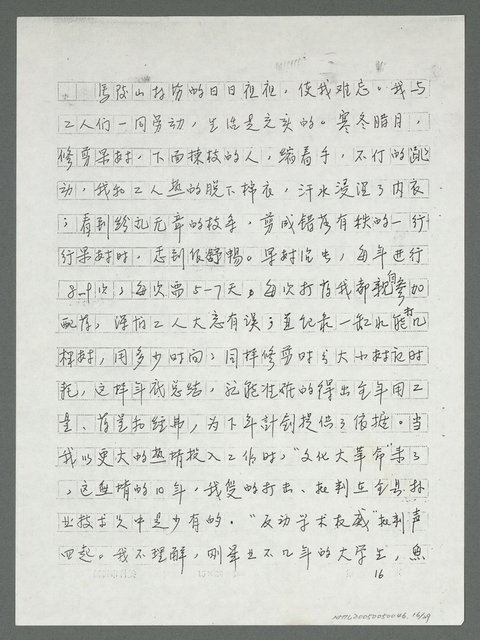 马陵山林场的日日夜夜，使我难忘。我与
工人们一同劳动，生活是充实的。寒冬腊月，
修剪果树，下面拣枝的人，缩着手，不停的跳
动，我和工人热的脱下棉衣，汗水浸湿了内衣
；看到纷乱无章的枝条，剪成错落有秩的一行
行果树时，感到很舒畅。果树治虫，每年进行
8-9次；每次需5-7天。每次打药我都亲自参加
配药，深怕工人大意有误；并记录一缸水能打几
棵树，用多少时间；同样修剪时分大小树记时
耗，这样年底总结，就能准确的得出全年用工
量、药量和经费，为下年计划提供了依据。当
我以更大的热情投入工作时，“文化大革命”来了
，这 的10年，我受的打击、批判在全县林
业技术员中是少有的。“反动学术权威”批判声
四起。我不理解，刚毕业不几年的大学生，
16
NMTL20050050046. 16/29